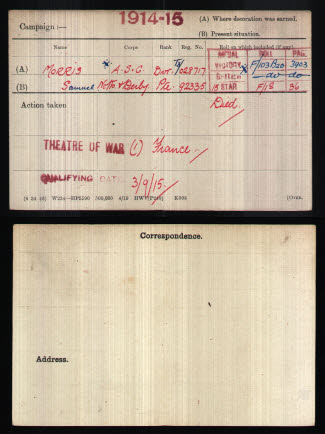 Campaign :— 1914-15 (A) Where decoration was earned.
(B) Present situation.
Name Corps Rank Reg. No. Roll on which included (if any).
MEDAL ROLL PAGE
(A) MORRIS A.S.C. Dvr. T4/028717 VICTORY F/103B20 3903
BRITISH — do — do
(B) Samuel Notts & Derby. Pte. 92335 15 STAR F/18 36
Action taken Died.
THEATRE OF WAR (1) France
QUALIFYING DATE 3/9/15.
(Over.
Correspondence.
Address.